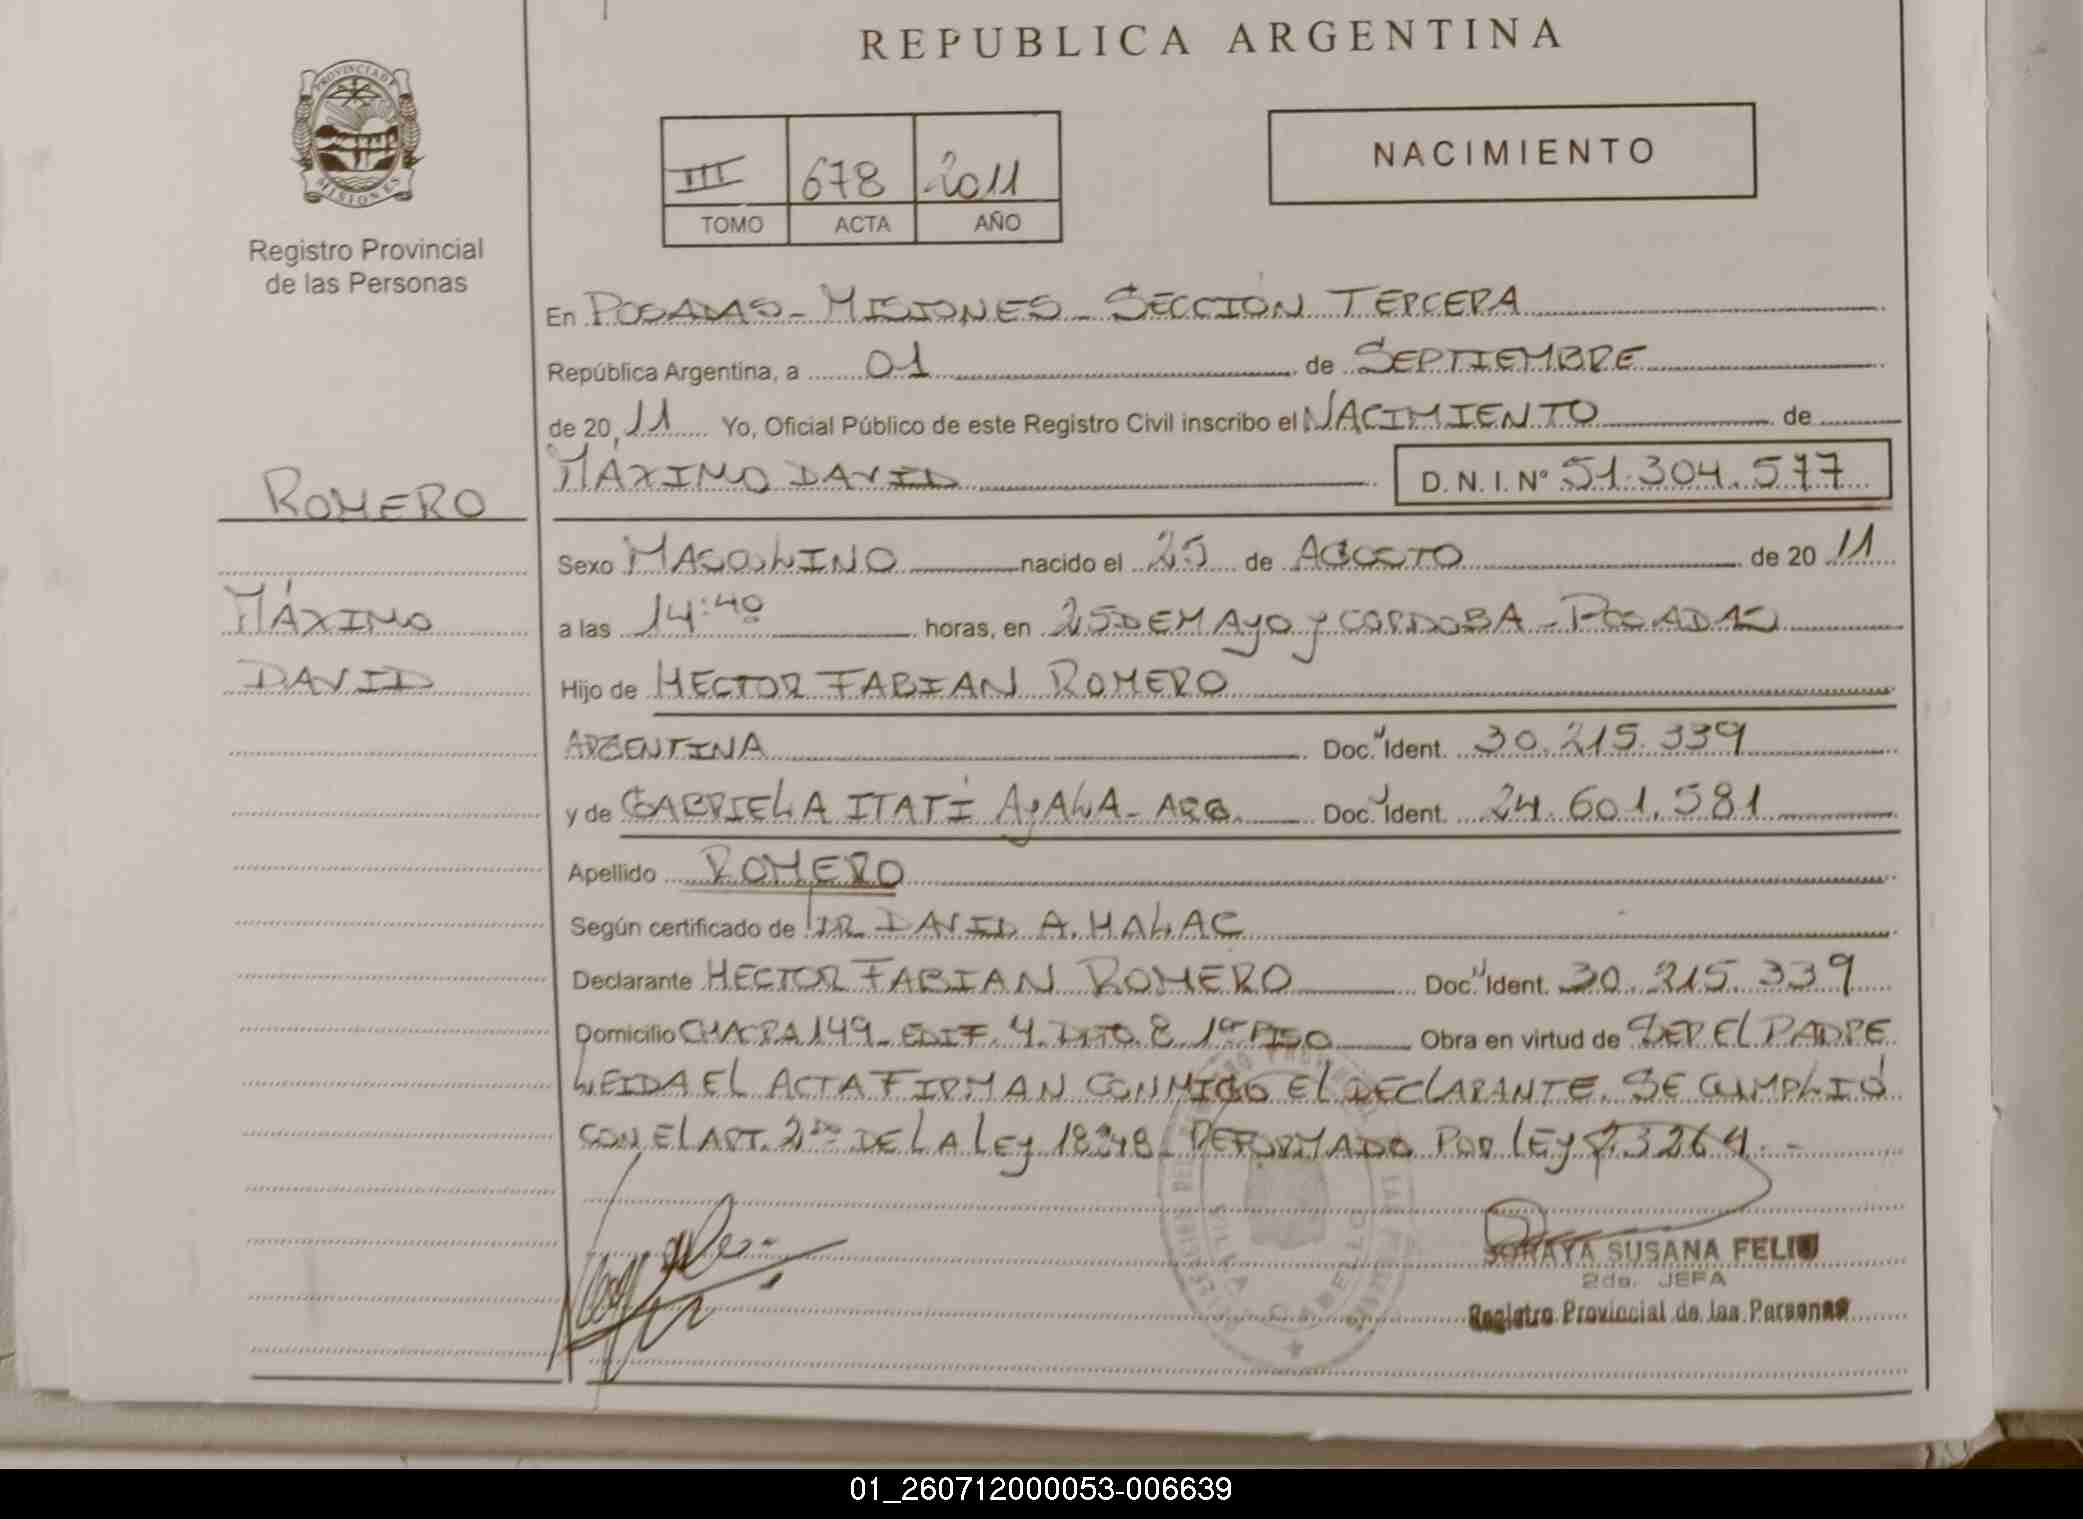 REPUBLICA ARGENTINA
PROVINCIA DE MISIONES
Registro Provincial
de las Personas
III 678 2011
TOMO ACTA AÑO
NACIMIENTO
En POSADAS - MISIONES - SECCIÓN TERCERA
República Argentina, a 01 de SEPTIEMBRE
de 20 11 Yo, Oficial Público de este Registro Civil inscribo el NACIMIENTO de
MÁXIMO DAVID D.N.I. Nº 51.304.577
ROMERO
MÁXIMO
DAVID
Sexo MASCULINO nacido el 25 de AGOSTO de 20 11
a las 14:40 horas, en 25 DE MAYO y CORDOBA - POSADAS
Hijo de HECTOR FABIAN ROMERO
ARGENTINA Doc. Ident. 30.215.339
y de GABRIELA ITATÍ AYALA - ARG. Doc. Ident. 24.601.581
Apellido ROMERO
Según certificado de DR. DAVID A. HALAC
Declarante HECTOR FABIAN ROMERO Doc. Ident. 30.215.339
Domicilio CHACRA 149 - EDIF. 4 DTO. 8 1er PISO Obra en virtud de SER EL PADRE
LEIDA EL ACTA FIRMAN CONMIGO EL DECLARANTE. SE CUMPLIÓ
CON EL ART. 2do DE LA LEY 18248 - REFORMADO POR LEY 23264.-
SORAYA SUSANA FELIU
2da. JEFA
Registro Provincial de las Personas
01_260712000053-006639